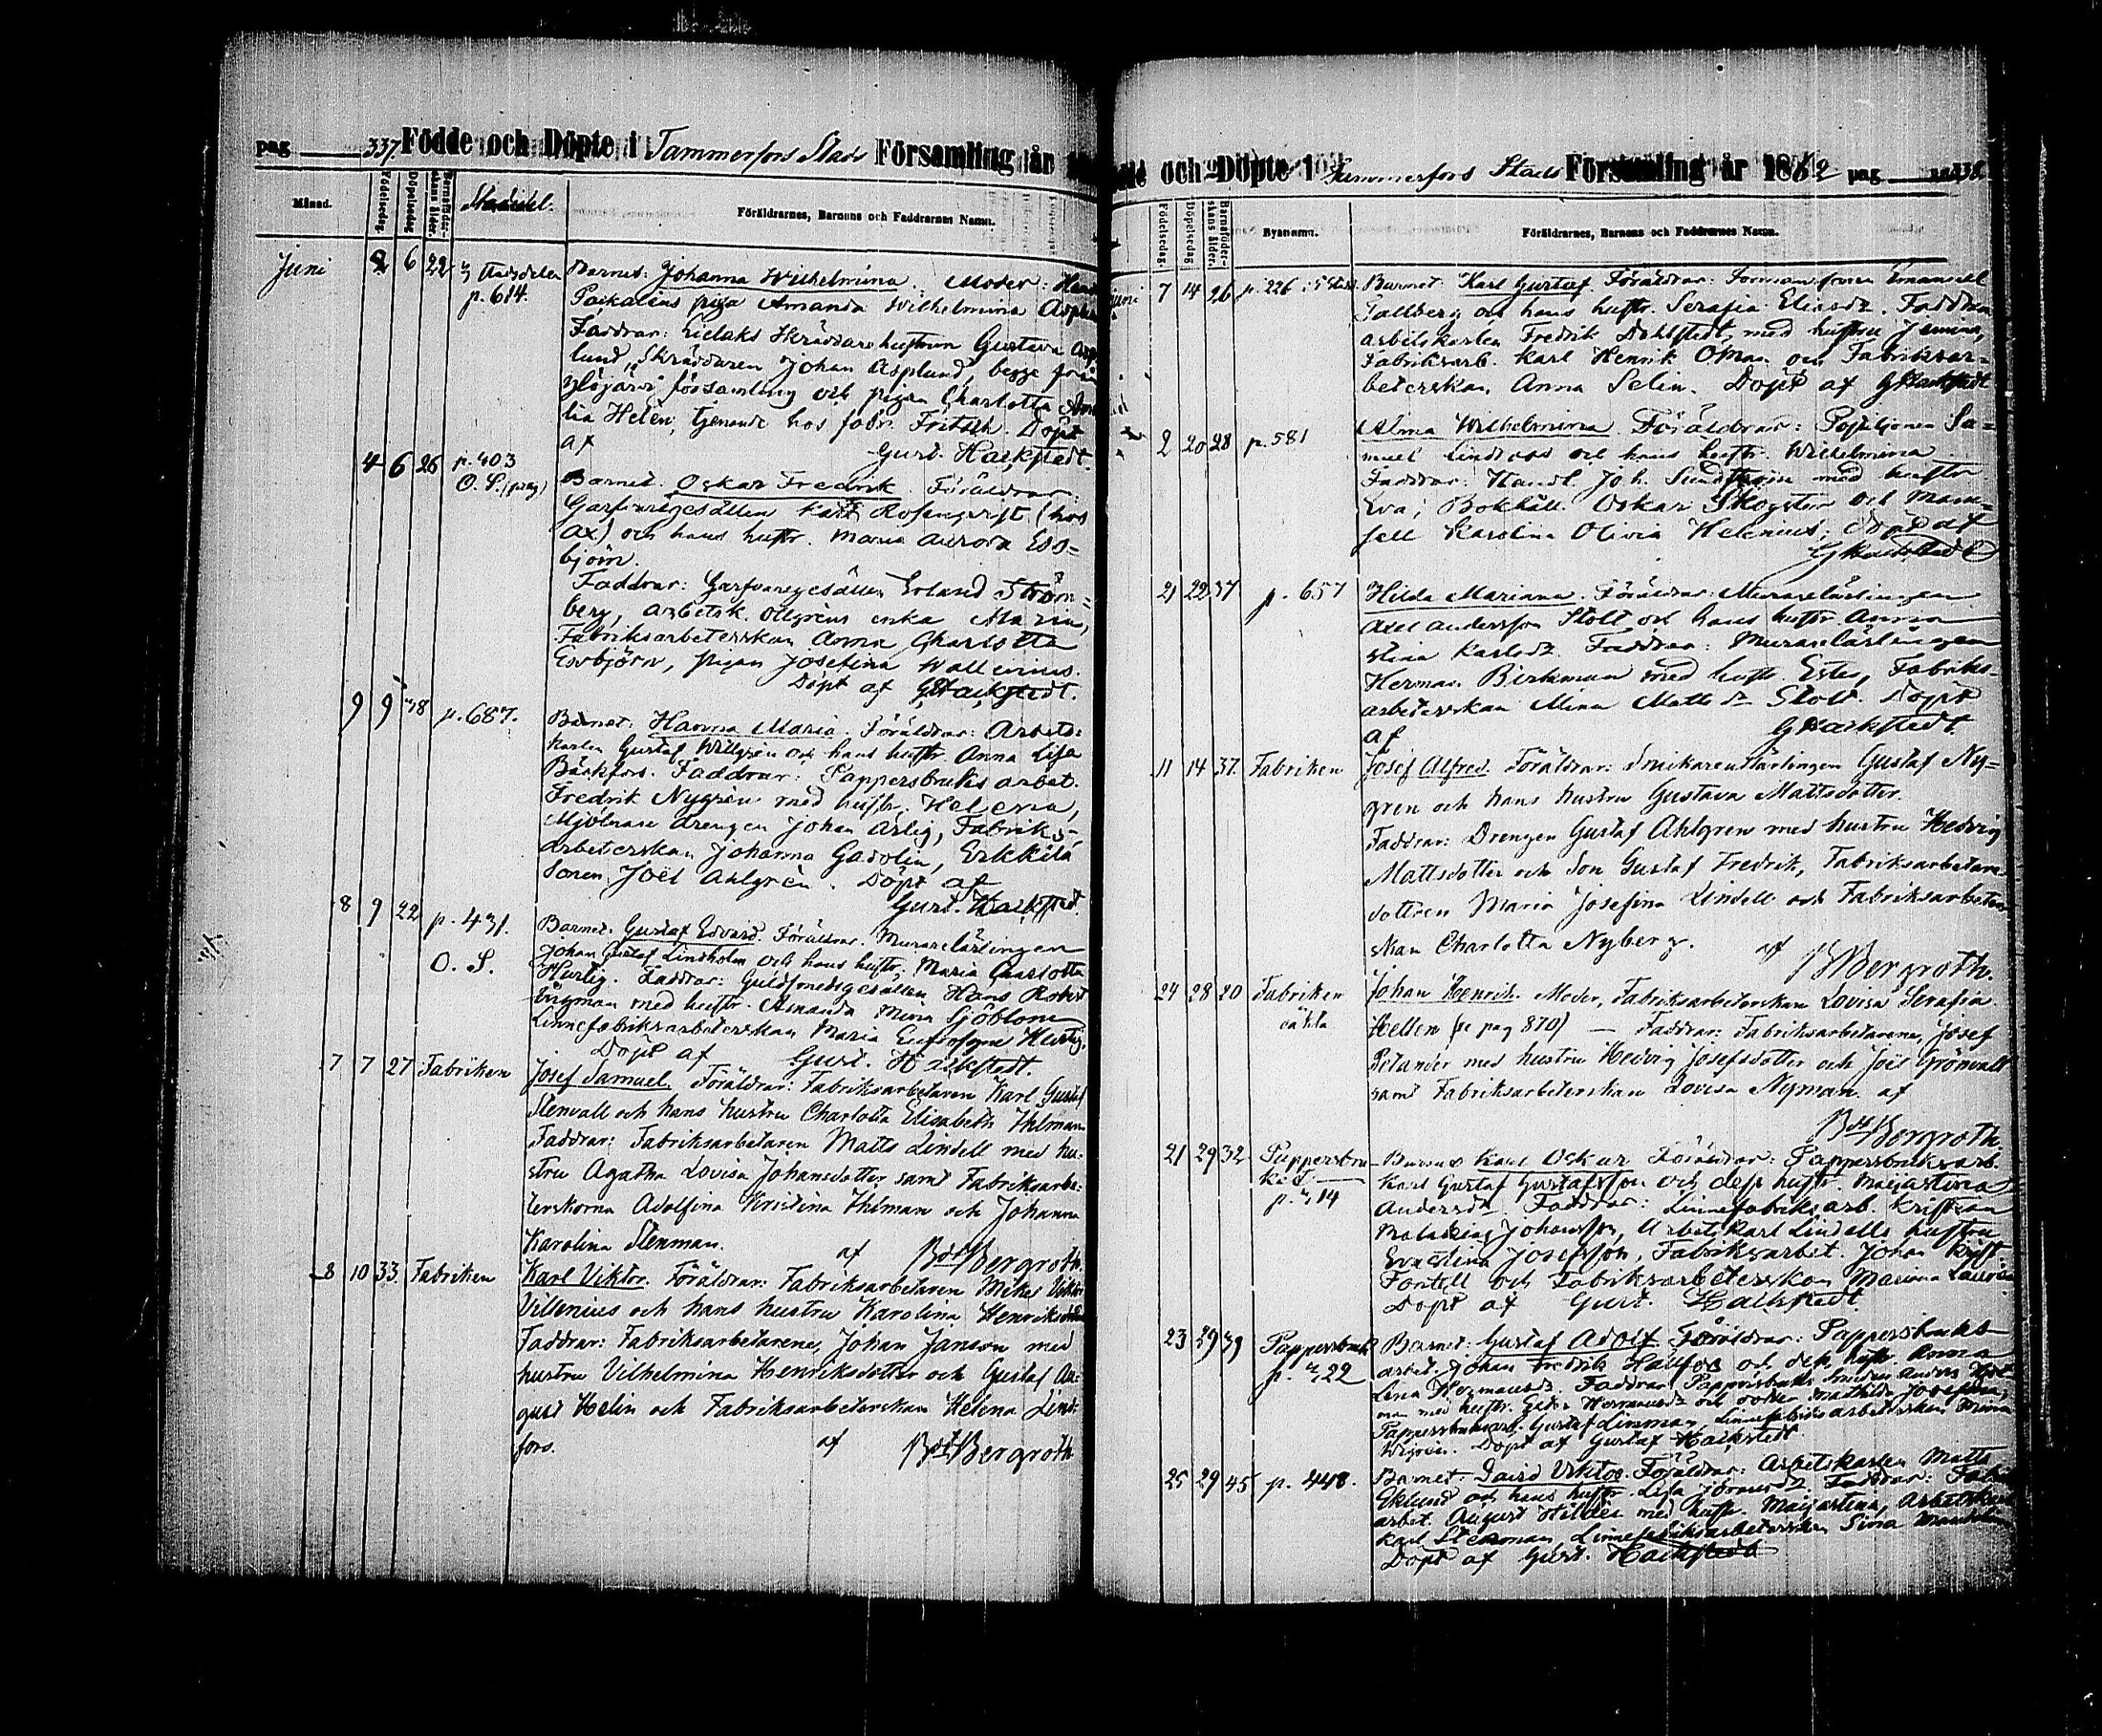 pag 337. Födde och Döpte i Tammerfors Stads Församling år
Månad. Födelsedag. Döpelsedag. Barnaföderskans ålder. Stadsdel. Föräldrarnes, Barnens och Faddrarnes Namn.
Juni 2 6 22 Stadsdelen p. 614. Barnet: Johanna Wilhelmina. Moder:
piga Amanda Wilhelmina
Faddrar: Skräddarehustrun Gustava Asp
lund, Skräddaren Johan Asplund, begge från
Ylöjärvi församling och pigan Charlotta
lia Helen, tjenande hos fabr. Fritsch. Döpt
af Gust. Hackstedt.
4 6 26 p. 403 O. S. Barnet: Oskar Fredrik. Föräldrar:
Garfvaregesällen Karl Rosenqvist (hos
Ax) och hans hustr. Maria Aurora Es=
björn.
Faddrar: Garfvaregesällen Erland Ström=
berg, arbetsk. Ollgréns enka Maria,
Fabriksarbeterskan Anna Charlotta
Esbjörn, pigan Josefina Wallenius.
Döpt af GHackstedt.
9 9 38 p. 687. Barnet: Hanna Maria. Föräldrar: Arbets=
karlen Gustaf Willgrén och hans hustr. Anna Lisa
Bäckfors. Faddrar: Pappersbruks arbet.
Fredrik Nygrén med hustr. Helena,
Mjölnare drengen Johan Ärlig, Fabriks-
arbeterskan Johanna Gadolin, Erkkilä
Sonen Joël Ahlgrén. Döpt af
Gust. Hackstedt.
8 9 22 p. 431. O. S. Barnet: Gustaf Edvard. Föräldrar: Murarelärlingen
Johan Gustaf Lindholm och hans hustr. Maria Charlotta
Hurtig. Faddrar: Guldsmedsgesällen Hans Robert
med hustr. Amanda Mina Sjöblom
Linnefabriksarbeterskan Maria Eufrosyne Hurtig.
Döpt af Gust. Hackstedt.
7 7 27 Fabriken Josef Samuel. Föräldrar: Fabriksarbetaren Karl Gustaf
Stenvall och hans hustru Charlotta Elisabeth Ihlman
Faddrar: Fabriksarbetaren Matts Lindell med hu-
stru Agatha Lovisa Johansdotter samt Fabriksarbe-
terskorna Adolfina Kristina Ihlman och Johanna
Karolina Stenman. af Bergroth.
8 10 33. Fabriken Karl Viktor. Föräldrar: Fabriksarbetaren Mikel Viktor
Villenius och hans hustru Karolina Henriksdotter
Faddrar: Fabriksarbetarene Johan Janson med
hustru Vilhelmina Henriksdotter och Gustaf Au-
gust Helin och Fabriksarbeterskan Helena Lind-
fors. af Bergroth
och Döpte i Tammerfors Stads Församling år 1862 pag 338.
Födelsedag. Döpelsedag. Barnaföderskans ålder. Byanamn. Föräldrarnes, Barnens och Faddrarnes Namn.
Juni 7 14 26 p. 226 Barnet: Karl Gustaf. Föräldrar: Emanuel
Tallberg och hans hustr. Serafia Eliasdr. Faddrar
arbetskarlen Fredrik Dahlstedt med hustru
Fabriksarb. Karl Henrik Öman och Fabriksar=
beterskan Anna Selin. Döpt af GHackstedt
2 20 28 p. 581 Alma Wilhelmina. Föräldrar: Postiljonen Sa=
muel Lindroos och hans hustr. Wilhelmina
Faddrar: Handl. Joh. med hustr
Eva; Bokhåll. Oskar Skogster och Mam=
sell Karolina Olivia Helenius. Döpt af
GHackstedt
21 22 37 p. 657 Hilda Mariana. Föräldrar: Murarelärlingen
Axel Andersson Stolt och hans hustr. Anna
Stina Karlsdr. Faddrar: Murarelärlingen
Herman Birkman med hustr. Ester, Fabriks-
arbeterskan Mina Matts dr Stolt. Döpt
af GHackstedt.
11 14 37. Fabriken Josef Alfred. Föräldrar: Snickarelärlingen Gustaf Ny=
gren och hans hustru Gustava Mattsdotter.
Faddrar: Drengen Gustaf Ahlgren med hustru Hedvig
Mattsdotter och Son Gustaf Fredrik, Fabriksarbetare-
dottren Maria Josefina Lindell och Fabriksarbeter
skan Charlotta Nyberg. af Bergroth.
24 28 20 Fabriken oäkta Johan Henrik. Moder, Fabriksarbeterskan Lovisa Serafia
Hellen (se pag 870) — Faddrar: Fabriksarbetarene, Josef
Petander med hustru Hedvig Josefsdotter och Joël Grönvall
samt Fabriksarbeterskan Lovisa Nyman. af
Bergroth
21 29 32 Pappersbruket p. 14 Barnet Karl Oskar Föräldrar: Pappersbruksarb.
Karl Gustaf Gustafsson och dess hustr. Majastina
Andersdr. Faddrar: Linnefabriksarb. Kristian
Johansson, Arbetskarl Lindells hustru
Josefsson, Fabriksarbet. Johan
Forsell och Fabriksarbeterskan Mariana
Döpt af Gust. Hackstedt.
23 29 39 Pappersbruk p. 22 Barnet: Gustaf Adolf Föräldrar: Pappersbruks
arbet. Johan Fredrik Hallfors och dess hustr. Anna
Lena Hermansdr. Faddrar: Pappersbruks Smeden Anders
man med hustr. Hermansdr och dotter Mathilda Josefina,
Pappersbruksarb. Gustaf Linman, Linnefabriksarbeterskan
Wigrén. Döpt af Gustaf Hackstedt
25 29 45 p. 448. Barnet: David Viktor. Föräldrar: Arbetskarlen Matts
Eklund och hans hustr. Lisa Faddrar:
arbet. August Hildén med hustr. Majastina, Arbetskarl
Karl Stenman, Linnefabriksarbeterskan Sina
Döpt af Gust. Hackstedt